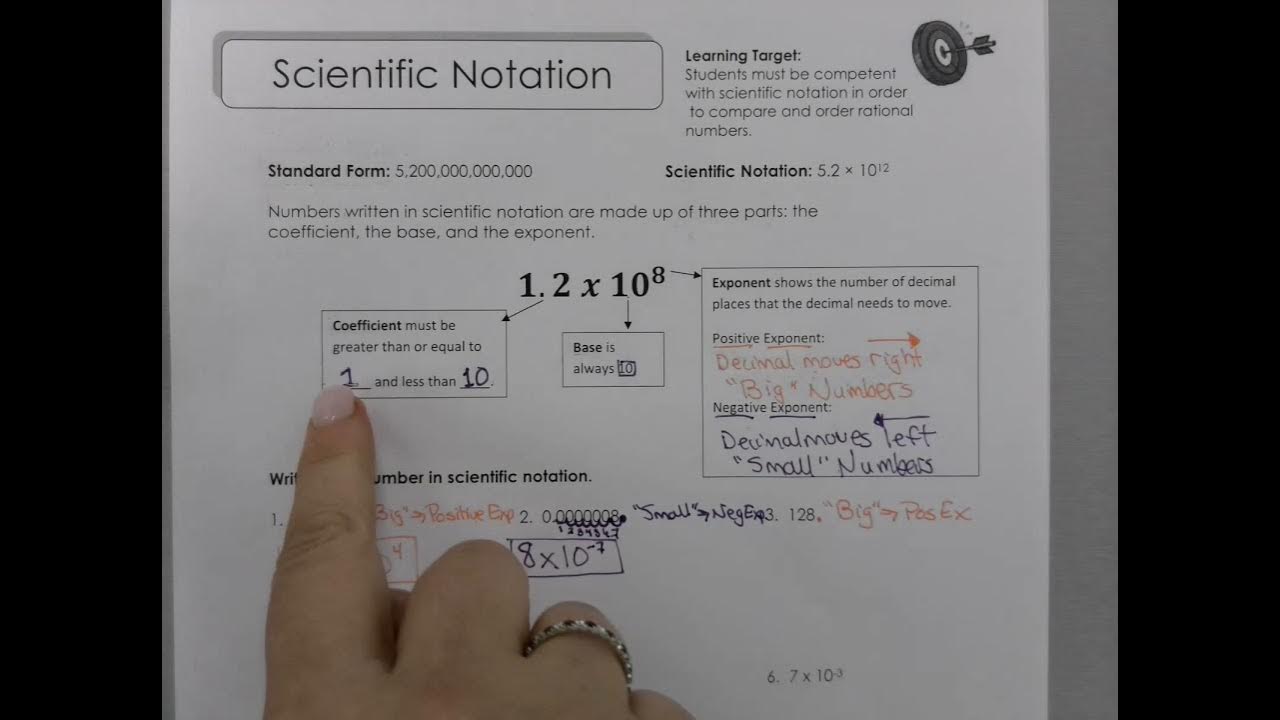 Scientific Notation
Learning Target:
Students must be competent
with scientific notation in order
to compare and order rational
numbers.
Standard Form: 5,200,000,000,000
Scientific Notation: 5.2 × 10¹²
Numbers written in scientific notation are made up of three parts: the
coefficient, the base, and the exponent.
1.2 x 10⁸
Coefficient must be
greater than or equal to
1 and less than 10.
Base is
always 10
Exponent shows the number of decimal
places that the decimal needs to move.
Positive Exponent:
Decimal moves right
"Big" Numbers
Negative Exponent:
Decimal moves left
"Small" Numbers
umber in scientific notation.
1. Big" → Positive Exp
4
2. 0.0000008. "Small" → NegExp
1 2 3 4 5 6 7
8x10⁻⁷
3. 128. "Big" → Pos Ex
6. 7 x 10⁻³